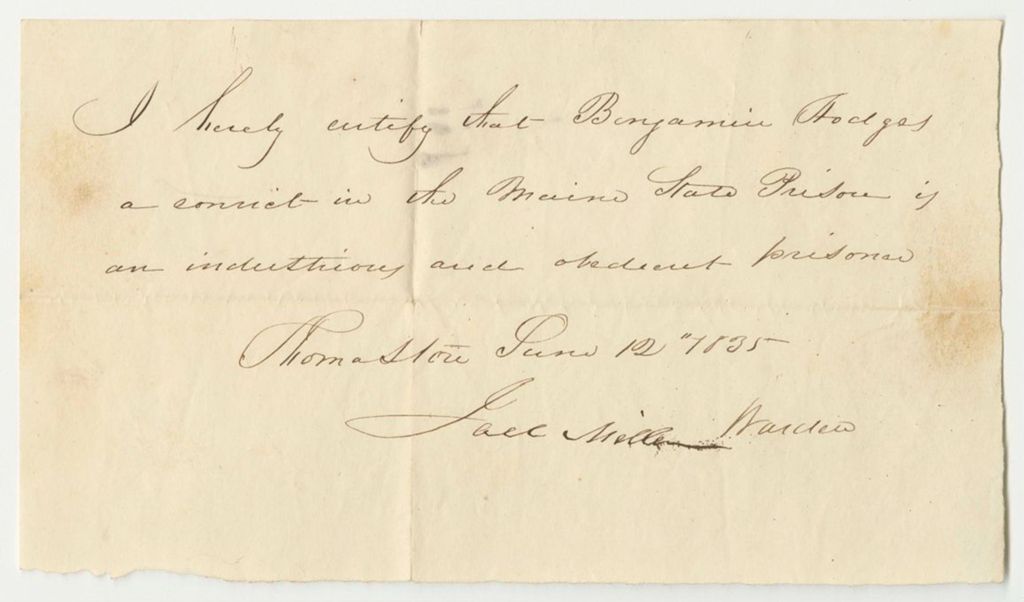 I herely certify that Benjamin Hodges
a convict in the Maine State Prison is
an industrious and obedient prisoner
Thomaston June 12" 1835
Joel Miller Warden